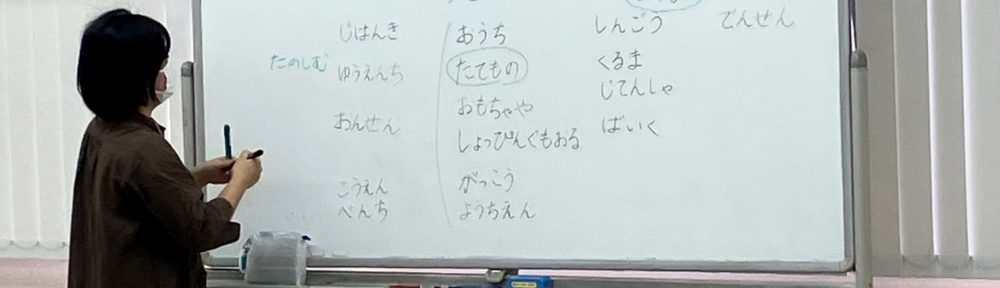 じはんき
たのしむ
ゆうえんち
おんせん
こうえん
べんち
おうち
たてもの
おもちゃや
しょっぴんぐもおる
がっこう
ようちえん
しんごう
くるま
じてんしゃ
ばいく
でんせん